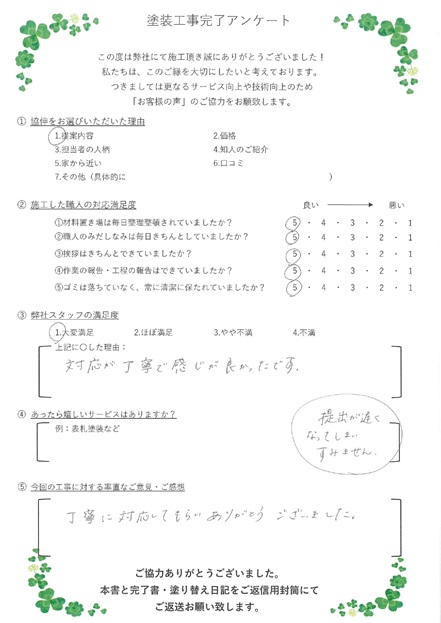 塗装工事完了アンケート
この度は弊社にて施工頂き誠にありがとうございました！
私たちは、このご縁を大切にしたいと考えております。
つきましては更なるサービス向上や技術向上のため
「お客様の声」のご協力をお願致します。
① 協伸をお選びいただいた理由
1.提案内容 2.価格
3.担当者の人柄 4.知人のご紹介
5.家から近い 6.口コミ
7.その他（具体的に ）
② 施工した職人の対応満足度 良い 悪い
①材料置き場は毎日整理整頓されていましたか？ 5 ・ 4 ・ 3 ・ 2 ・ 1
②職人のみだしなみは毎日きちんとしていましたか？ 5 ・ 4 ・ 3 ・ 2 ・ 1
③挨拶はきちんとできていましたか？ 5 ・ 4 ・ 3 ・ 2 ・ 1
④作業の報告・工程の報告はできていましたか？ 5 ・ 4 ・ 3 ・ 2 ・ 1
⑤ゴミは落ちていなく、常に清潔に保たれていましたか？ 5 ・ 4 ・ 3 ・ 2 ・ 1
③ 弊社スタッフの満足度
1.大変満足 2.ほぼ満足 3.やや不満 4.不満
上記に〇した理由：
対応が丁寧で感じが良かったです.
④ あったら嬉しいサービスはありますか？
例：表札塗装など
提出が遅く
なってしまい
すみません.
⑤ 今回の工事に対する率直なご意見・ご感想
丁寧に対応してもらいありがとうございました。
ご協力ありがとうございました。
本書と完了書・塗り替え日記をご返信用封筒にて
ご返送お願い致します。